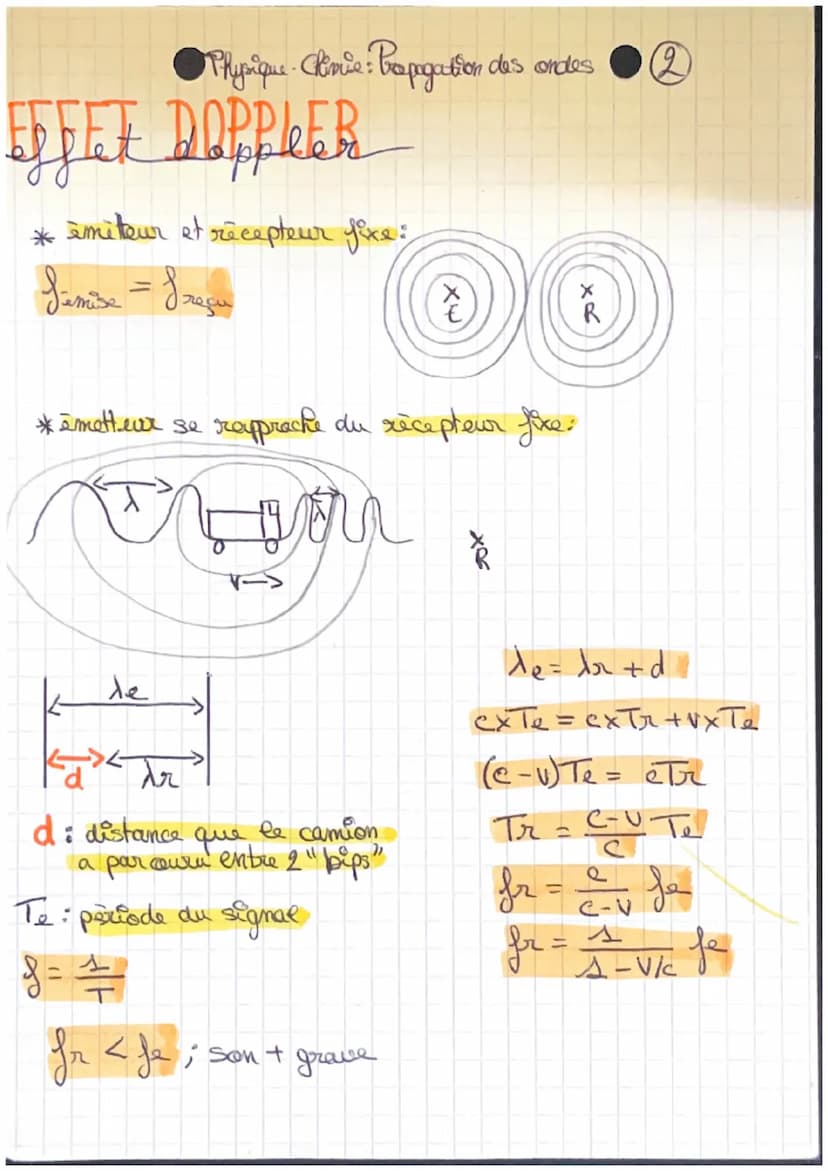 Physique-Chimie: Propagation des ondes 2
EFFET DOPPLER
effet doppler
* émiteur et récepteur fixe:
fémise = freçu
x x
E R
* émetteur se rapproche du récepteur fixe:
λ λ
x
R
v→
λe
d λr
d: distance que le camion
a parcouru entre 2 "bips"
Te: période du signal
f = 1/T
fr < fe ; son + grave
λe = λr + d
c×Te = c×Tr + v×Te
(c-v)Te = cTr
Tr = c-v/c Te
fr = c/c-v fe
fr = 1/1-v/c fe